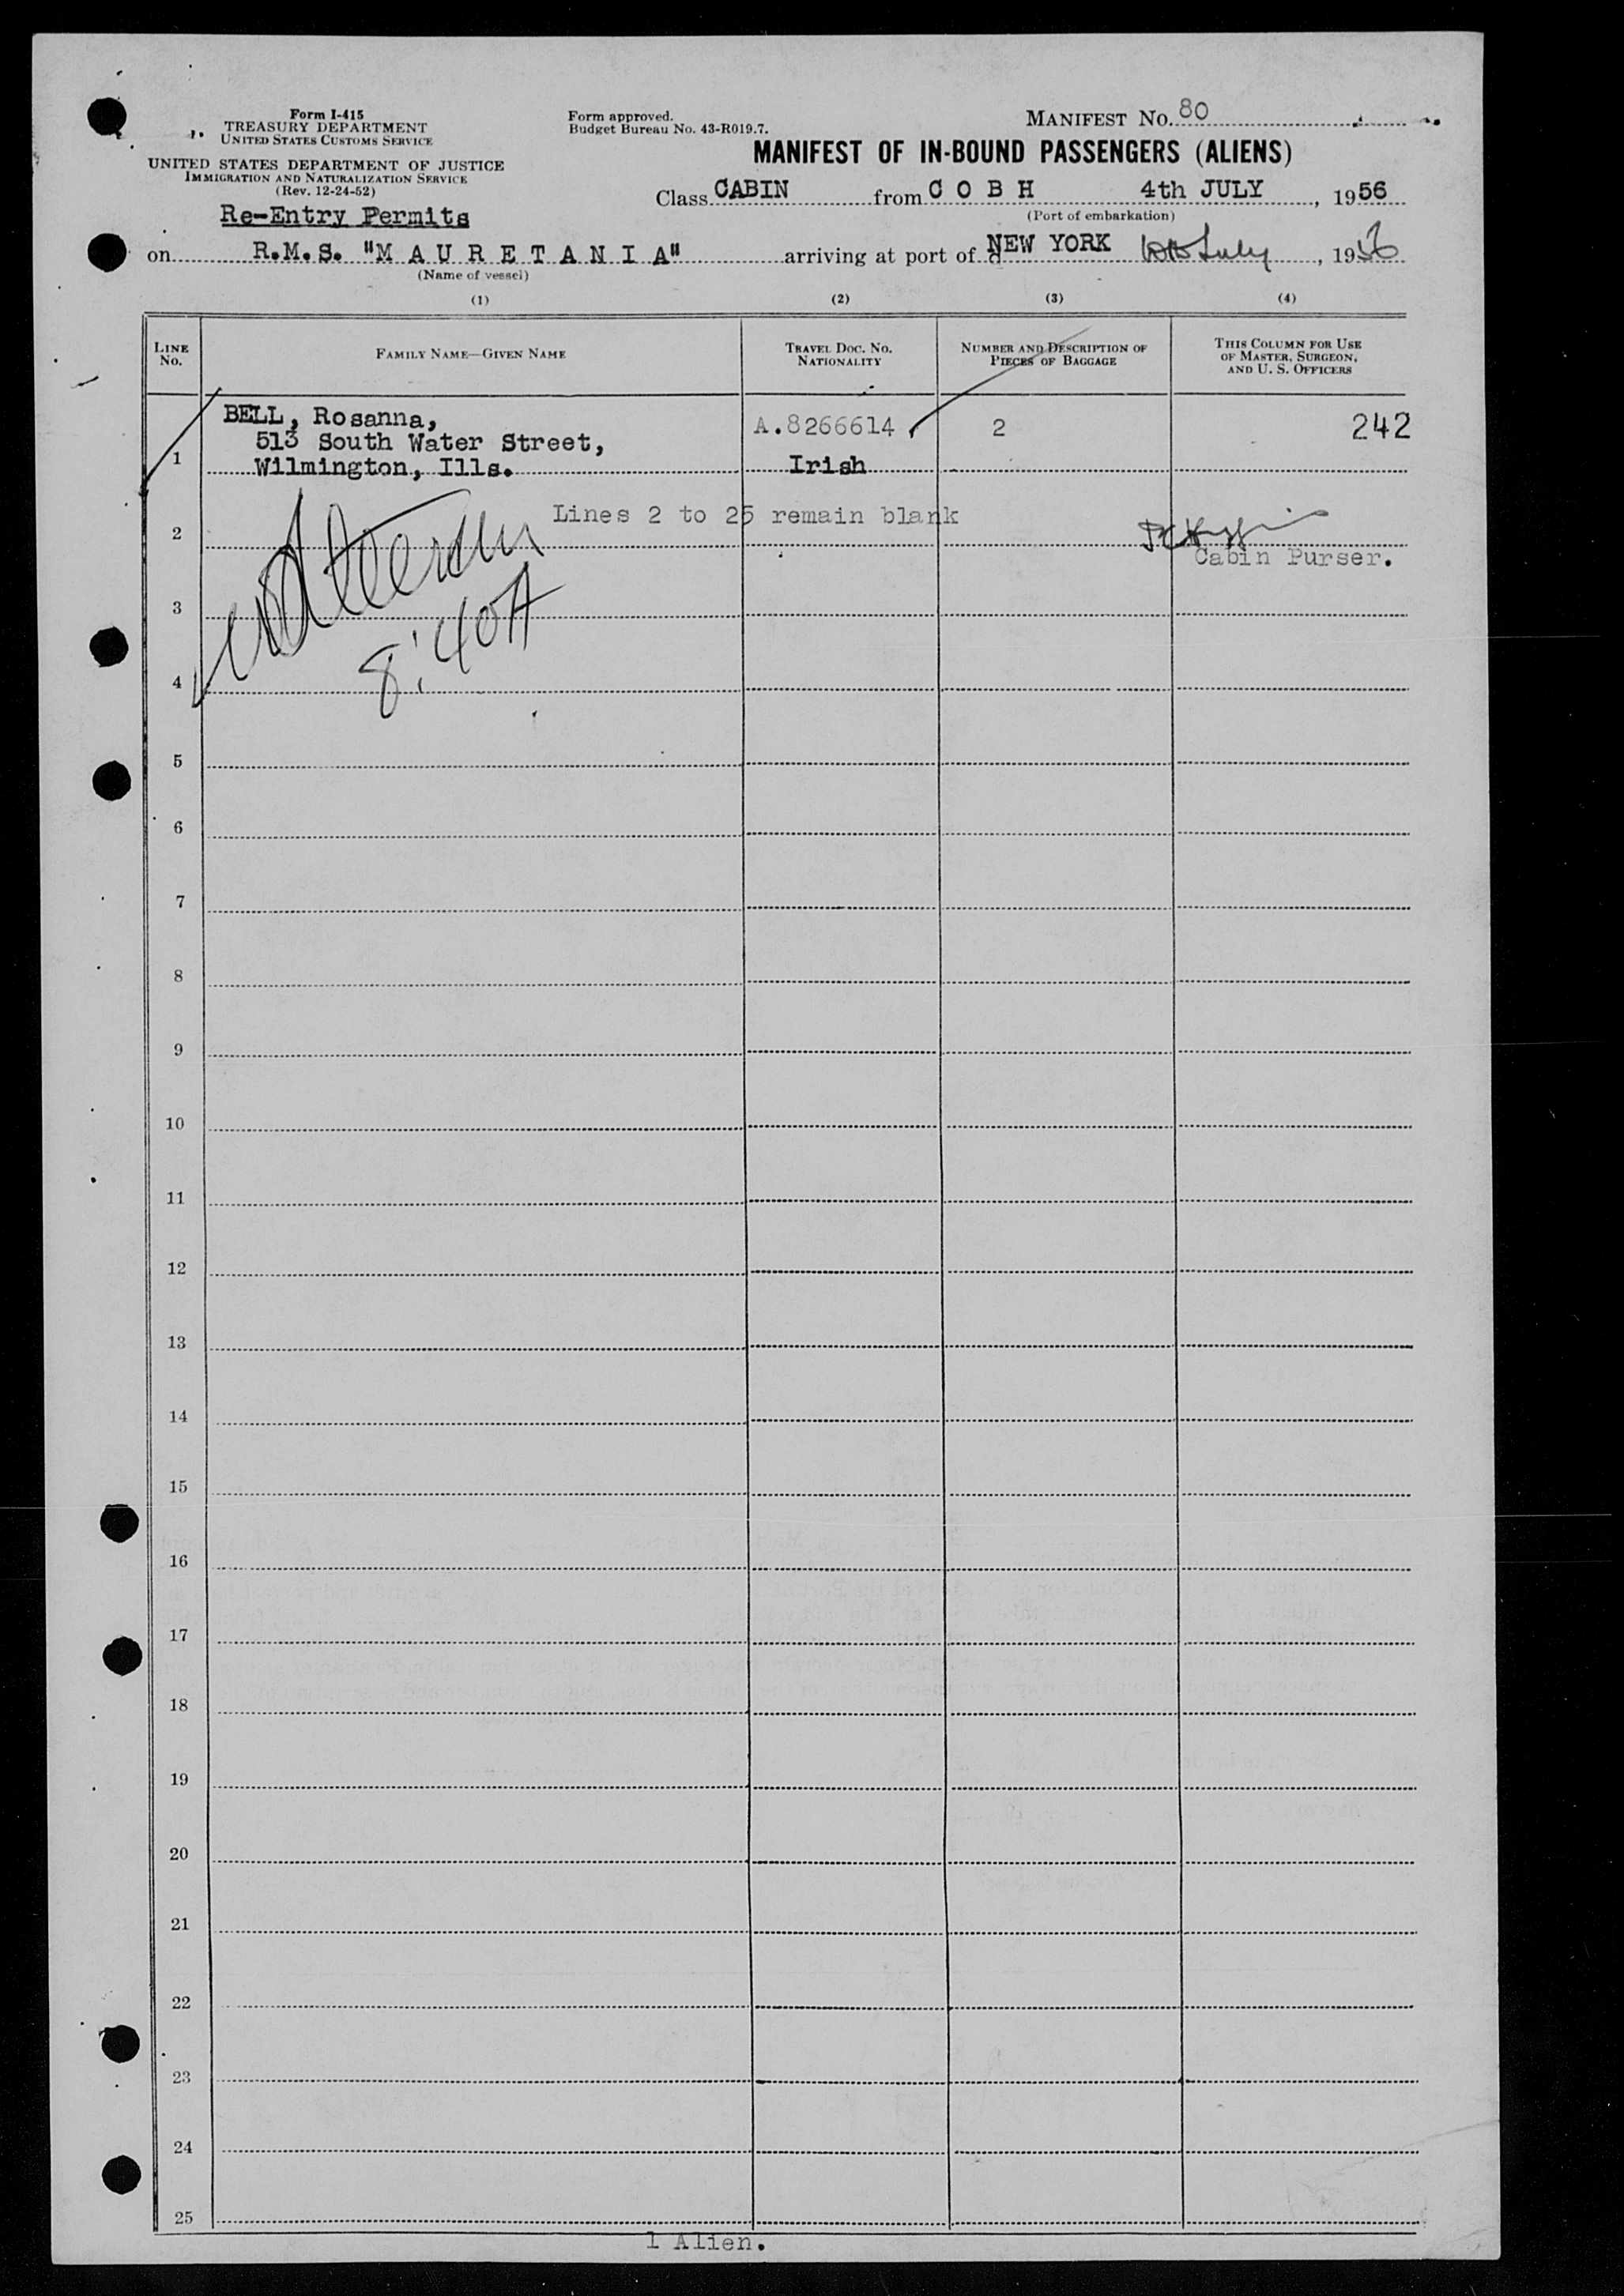 Form I-415
TREASURY DEPARTMENT
UNITED STATES CUSTOMS SERVICE
UNITED STATES DEPARTMENT OF JUSTICE
IMMIGRATION AND NATURALIZATION SERVICE
(Rev. 12-24-52)
Re-Entry Permits
Form approved.
Budget Bureau No. 43-R019.7.
MANIFEST No. 80
MANIFEST OF IN-BOUND PASSENGERS (ALIENS)
Class CABIN from C O B H 4th JULY, 1956
(Port of embarkation)
on R.M.S. "M A U R E T A N I A" arriving at port of NEW YORK July, 1956
(Name of vessel)
(1) (2) (3) (4)
LINE No. FAMILY NAME—GIVEN NAME TRAVEL DOC. NO. NATIONALITY NUMBER AND DESCRIPTION OF PIECES OF BAGGAGE THIS COLUMN FOR USE OF MASTER, SURGEON, AND U. S. OFFICERS
BELL, Rosanna, A.8266614 2 242
513 South Water Street,
1 Wilmington, Ills. Irish
2 Lines 2 to 25 remain blank
Cabin Purser.
3
8:40A
4
5
6
7
8
9
10
11
12
13
14
15
16
17
18
19
20
21
22
23
24
25
1 Alien.